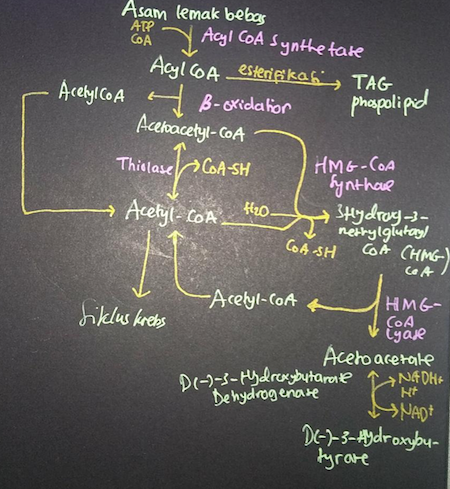 Asam lemak bebas
ATP
CoA
Acyl CoA Synthetase
Acyl CoA
esterifikasi
TAG
phospolipid
Acetyl CoA
β-oxidation
Acetoacetyl-CoA
Thiolase
CoA-SH
HMG-CoA
Synthase
Acetyl-CoA
H2O
3Hydroxy-3-
methylglutaryl
CoA (HMG-
CoA)
CoA-SH
Siklus krebs
Acetyl-CoA
HMG-
CoA
Lyase
Acetoacetate
D(-)-3-Hydroxybutarate
Dehydrogenase
NADH+
H+
NAD+
D(-)-3-Hydroxybu-
tyrate